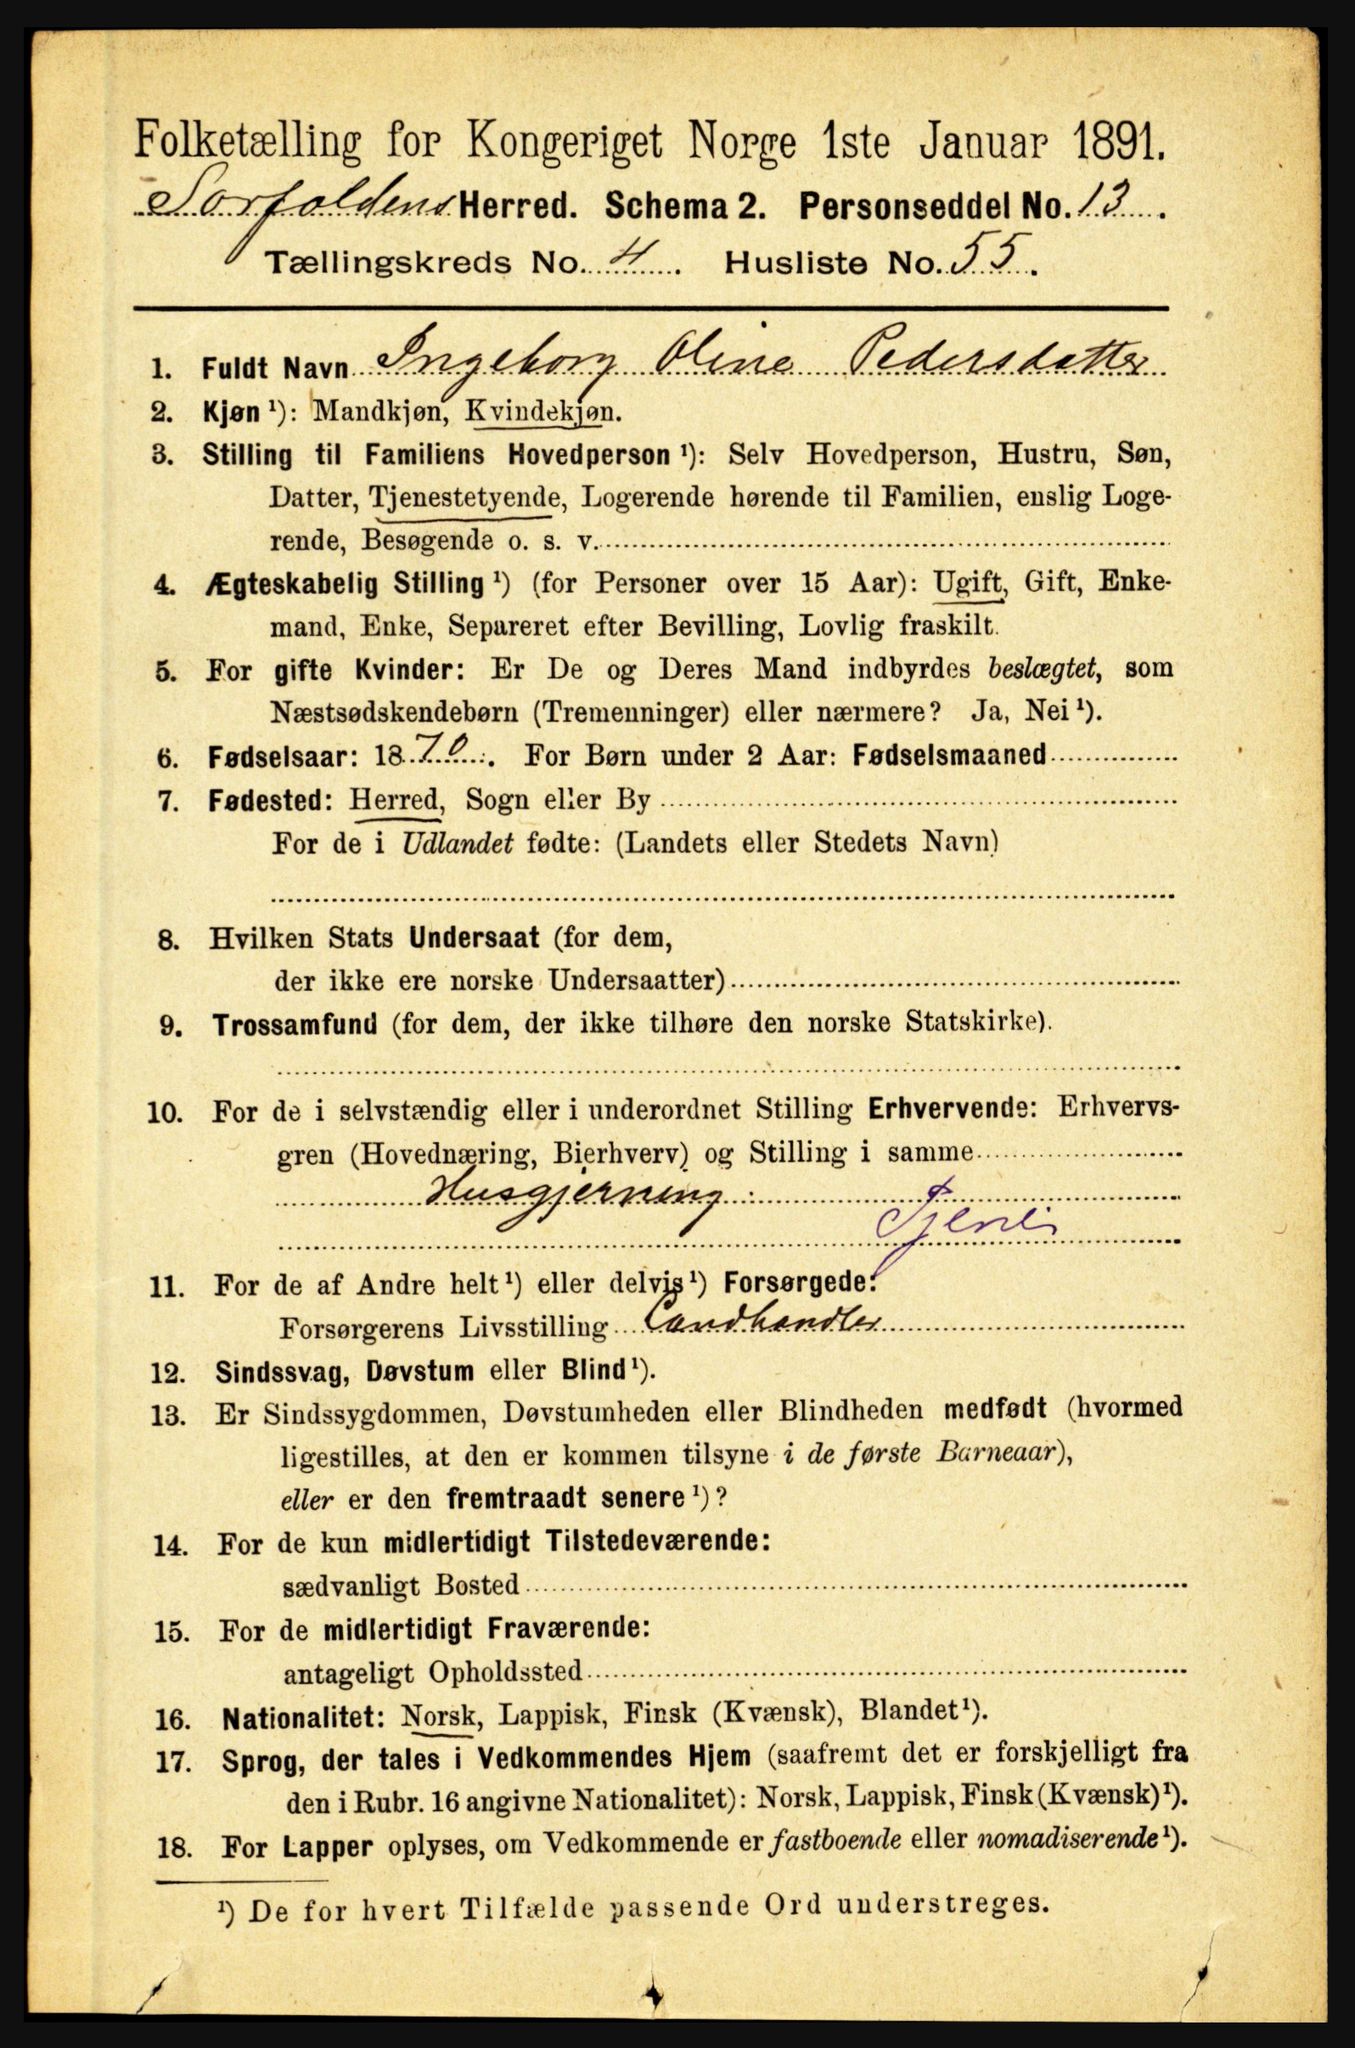 Folketælling for Kongeriget Norge 1ste Januar 1891.
Sørfoldens Herred. Schema 2. Personseddel No. 13.
Tællingskreds No. 4. Husliste No. 55.
1. Fuldt Navn Ingeborg Oline Pedersdatter
2. Kjøn ¹): Mandkjøn, Kvindekjøn.
3. Stilling til Familiens Hovedperson ¹): Selv Hovedperson, Hustru, Søn,
Datter, Tjenestetyende, Logerende hørende til Familien, enslig Loge-
rende, Besøgende o. s. v.
4. Ægteskabelig Stilling ¹) (for Personer over 15 Aar): Ugift, Gift, Enke-
mand, Enke, Separeret efter Bevilling, Lovlig fraskilt.
5. For gifte Kvinder: Er De og Deres Mand indbyrdes beslægtet, som
Næstsødskendebørn (Tremenninger) eller nærmere? Ja, Nei ¹).
6. Fødselsaar: 1870. For Børn under 2 Aar: Fødselsmaaned
7. Fødested: Herred, Sogn eller By
For de i Udlandet fødte: (Landets eller Stedets Navn)
8. Hvilken Stats Undersaat (for dem,
der ikke ere norske Undersaatter)
9. Trossamfund (for dem, der ikke tilhøre den norske Statskirke).
10. For de i selvstændig eller i underordnet Stilling Erhvervende: Erhvervs-
gren (Hovednæring, Bierhverv) og Stilling i samme
Husgjerning
11. For de af Andre helt ¹) eller delvis ¹) Forsørgede:
Forsørgerens Livsstilling Landhandler
12. Sindssvag, Døvstum eller Blind ¹).
13. Er Sindssygdommen, Døvstumheden eller Blindheden medfødt (hvormed
ligestilles, at den er kommen tilsyne i de første Barneaar),
eller er den fremtraadt senere ¹)?
14. For de kun midlertidigt Tilstedeværende:
sædvanligt Bosted
15. For de midlertidigt Fraværende:
antageligt Opholdssted
16. Nationalitet: Norsk, Lappisk, Finsk (Kvænsk), Blandet ¹).
17. Sprog, der tales i Vedkommendes Hjem (saafremt det er forskjelligt fra
den i Rubr. 16 angivne Nationalitet): Norsk, Lappisk, Finsk (Kvænsk) ¹).
18. For Lapper oplyses, om Vedkommende er fastboende eller nomadiserende ¹).
¹) De for hvert Tilfælde passende Ord understreges.